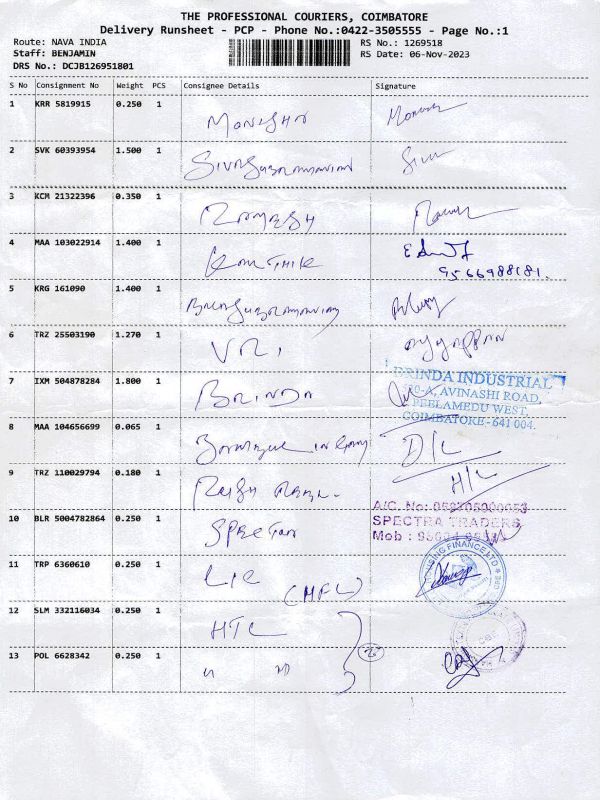 THE PROFESSIONAL COURIERS, COIMBATORE
Delivery Runsheet - PCP - Phone No.:0422-3505555 - Page No.:1
Route: NAVA INDIA RS No.: 1269518
Staff: BENJAMIN RS Date: 06-Nov-2023
DRS No.: DCJB126951801
S No Consignment No Weight PCS Consignee Details Signature
1 KRR 5819915 0.250 1
MONISHA
2 SVK 60393954 1.500 1
SIVASUBRAMANIAN Siva
3 KCM 21322396 0.350 1
RAMESH
4 MAA 103022914 1.400 1
KARTHIK
9566988181.
5 KRG 161090 1.400 1
BALASUBRAMANIAM
6 TRZ 25503190 1.270 1
VRI Ayyappan
7 IXM 504878284 1.800 1
BRINDA
BRINDA INDUSTRIAL
AVINASHI ROAD,
PEELAMEDU WEST,
COIMBATORE - 641 004.
8 MAA 104656699 0.065 1
D/L
9 TRZ 110029794 0.180 1
H/L
10 BLR 5004782864 0.250 1
A/C. No:
SPECTRA TRADERS
Mob :
11 TRP 6360610 0.250 1
LIC
(HFL)
HOUSING FINANCE LTD
12 SLM 332116034 0.250 1
HTC
13 POL 6628342 0.250 1